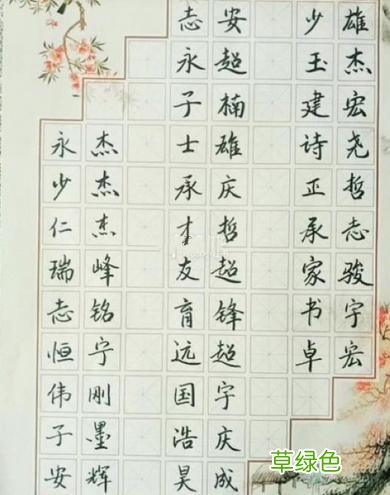 志安 少雄
永超 玉杰
子楠 建宏
永杰 士雄 诗尧
少杰 承庆 正哲
仁杰 才哲 承志
瑞峰 友超 家骏
志铭 育锋 书宇
恒宁 远超 卓宏
伟刚 国宇
子墨 浩庆
安辉 昊成
草绿色